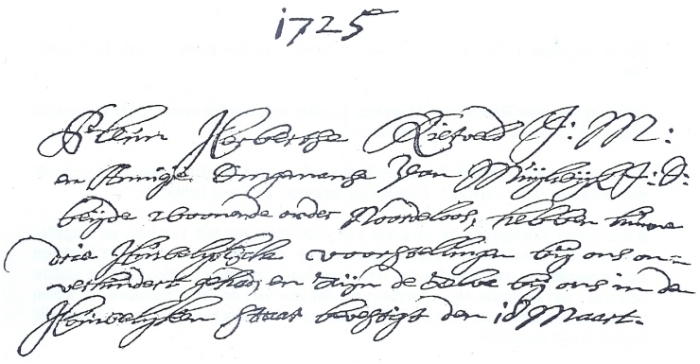 1725
Pleun Herbertse Rietveld J: M:
en Annigje Dingemense Van Muijlwijk J: D:
beijde woonende onder Noordeloos, hebben hunne
drie Houwelijcke voorstellingen bij ons on=
verhindert gehad, en zijn de selve bij ons in de
Houwelijken staat bevestigt den 18 Maart.